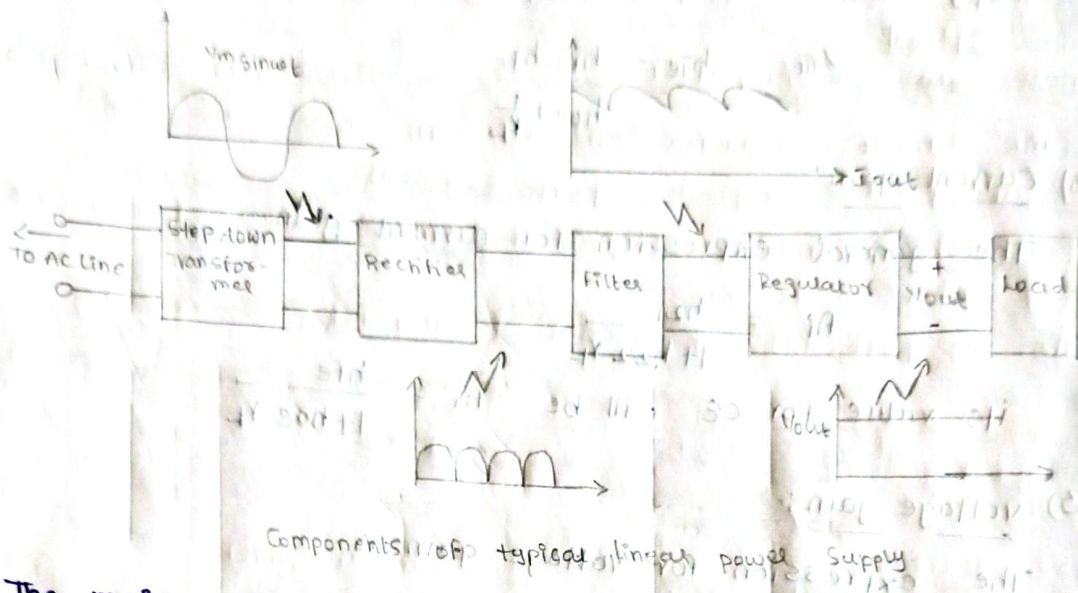 Vm sinωt
Step-town
Transfor-
mer
TO AC line
Rectifier
Filter
Regulator
+
Vout
-
Load
Vout
Components of typical linear power supply
The